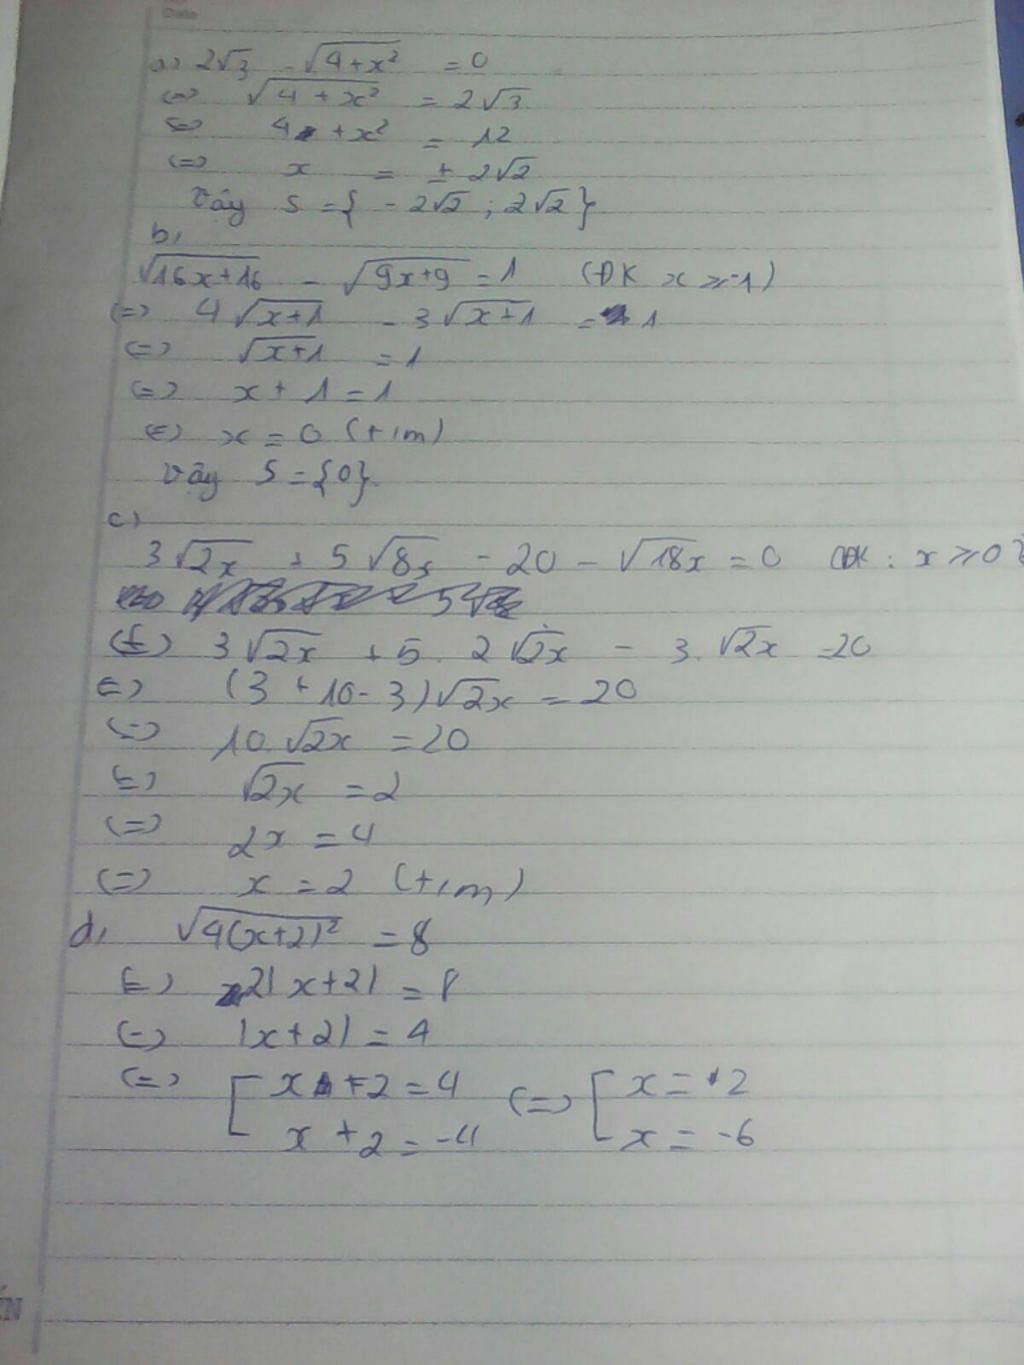 a) 2√3 - √(4+x²) = 0
<=> √(4 + x²) = 2√3
<=> 4 + x² = 12
<=> x = ± 2√2
Vậy S = { - 2√2 ; 2√2 }
b,
√(16x+16) - √(9x+9) = 1 (ĐK x ≥ -1)
<=> 4√(x+1) - 3√(x+1) = 1
<=> √(x+1) = 1
<=> x + 1 = 1
<=> x = 0 (t/m)
Vậy S = {0}.
c)
3√2x + 5√8x - 20 - √18x = 0 ĐK : x ≥ 0
<=> 3√2x + 5. 2√2x - 3.√2x = 20
<=> (3 + 10 - 3)√2x = 20
<=> 10.√2x = 20
<=> √2x = 2
<=> 2x = 4
<=> x = 2 (t/m)
d, √(4(x+2)²) = 8
<=> 2|x+2| = 8
<=> |x+2| = 4
<=> [ x + 2 = 4 <=> [ x = 2
x + 2 = -4 x = -6